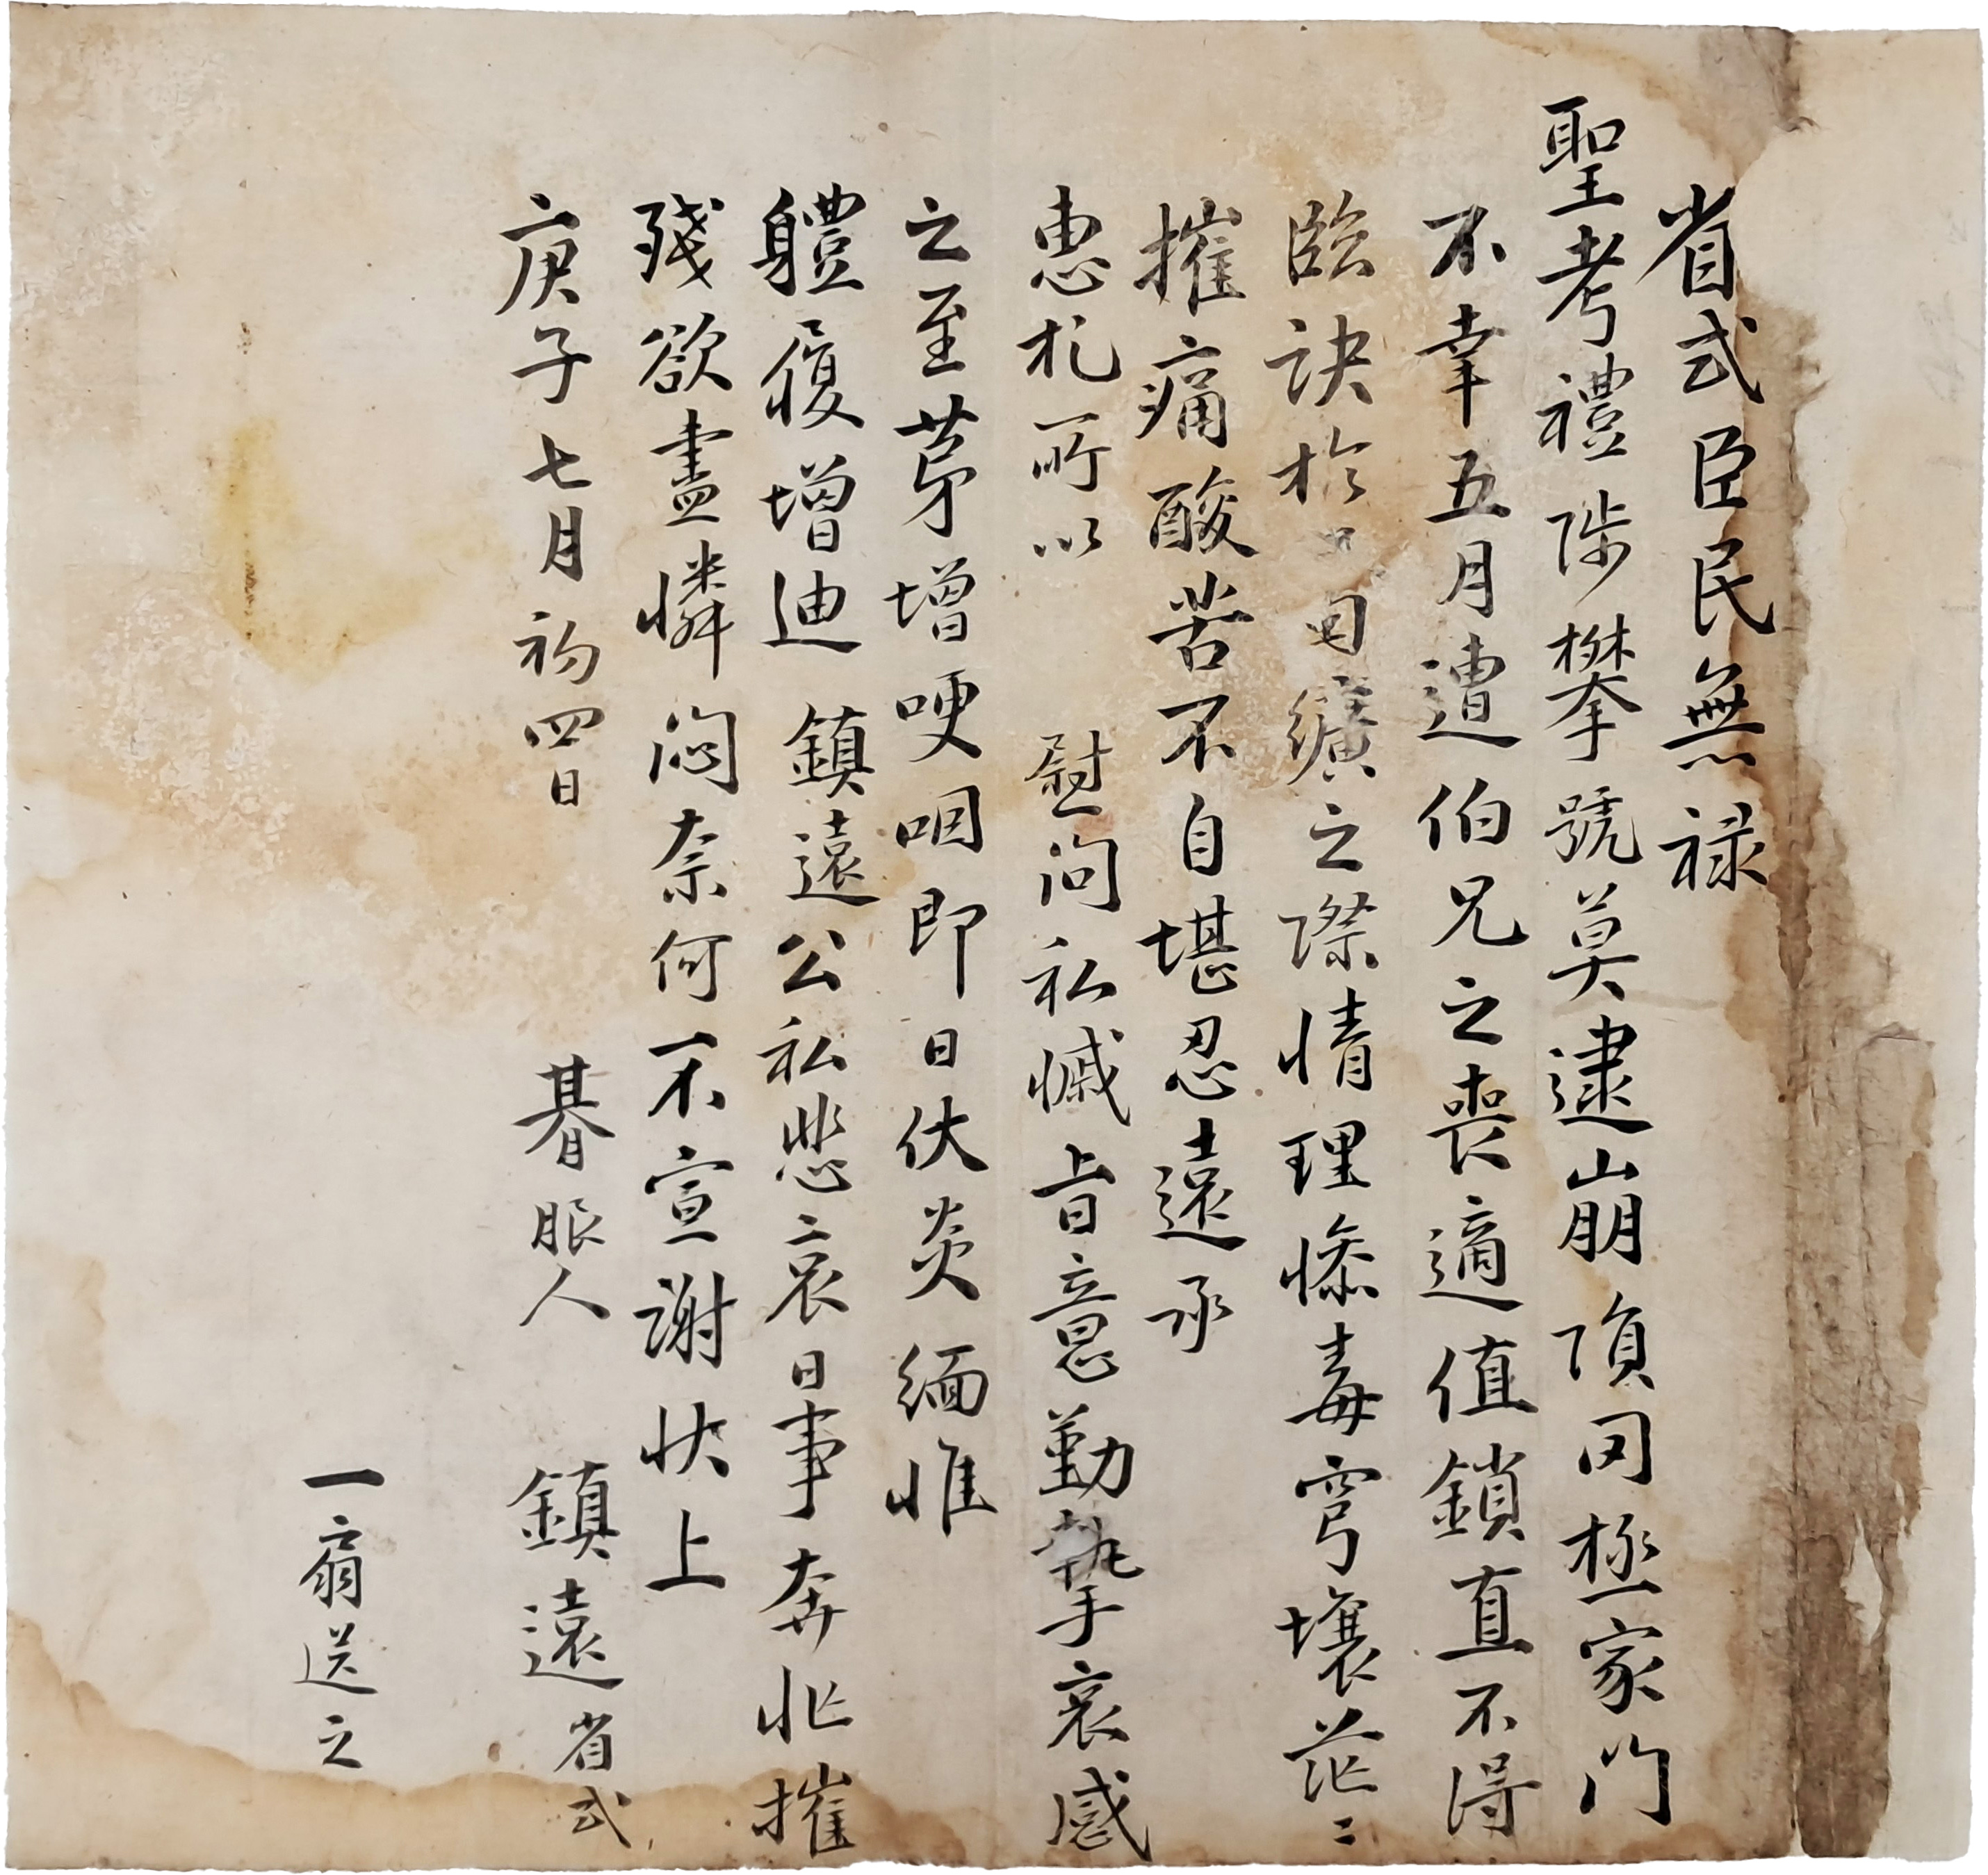 省式臣民無祿
聖考禮陟攀號莫逮崩隕罔極家門
不幸五月遭伯兄之喪適值鎖直不得
臨訣於纊之際情理慘毒穹壤茫〻
摧痛酸苦不自堪忍遠承
惠札所以 慰問私慽旨意勤摯哀感
之至芽增哽咽即日伏炎緬惟
軆履增迪 鎮遠公私悲哀日事奔忙摧
殘欲盡憐悶柰何不宣謝狀上
庚子七月初四日 朞服人 鎮遠省式
一扇送之